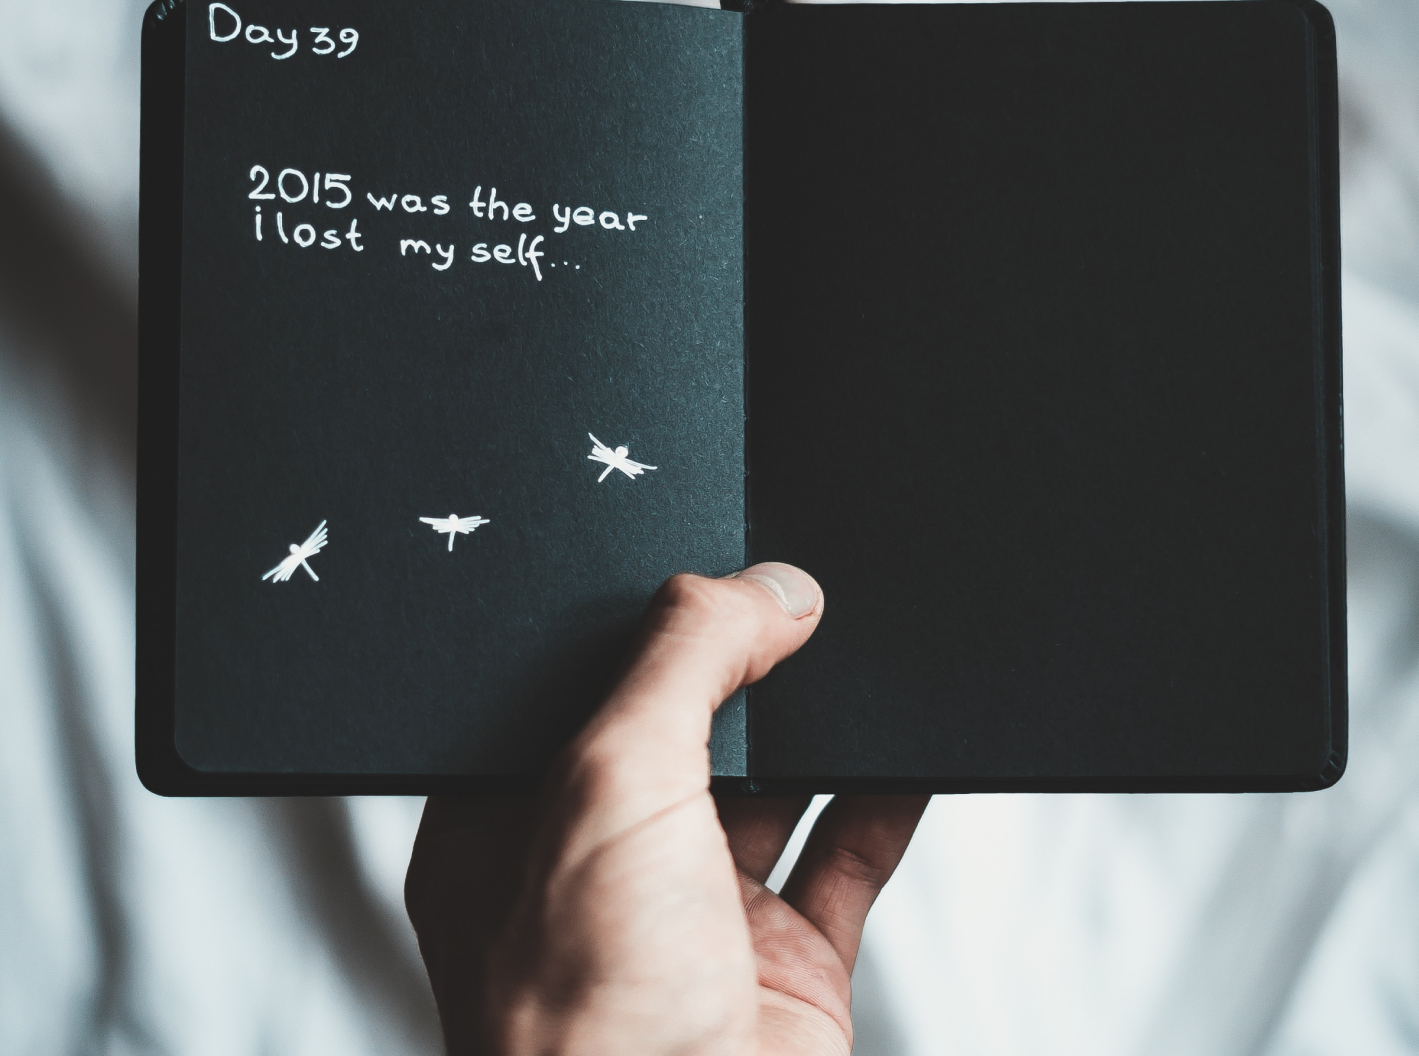 Day 39
2015 was the year
i lost my self...